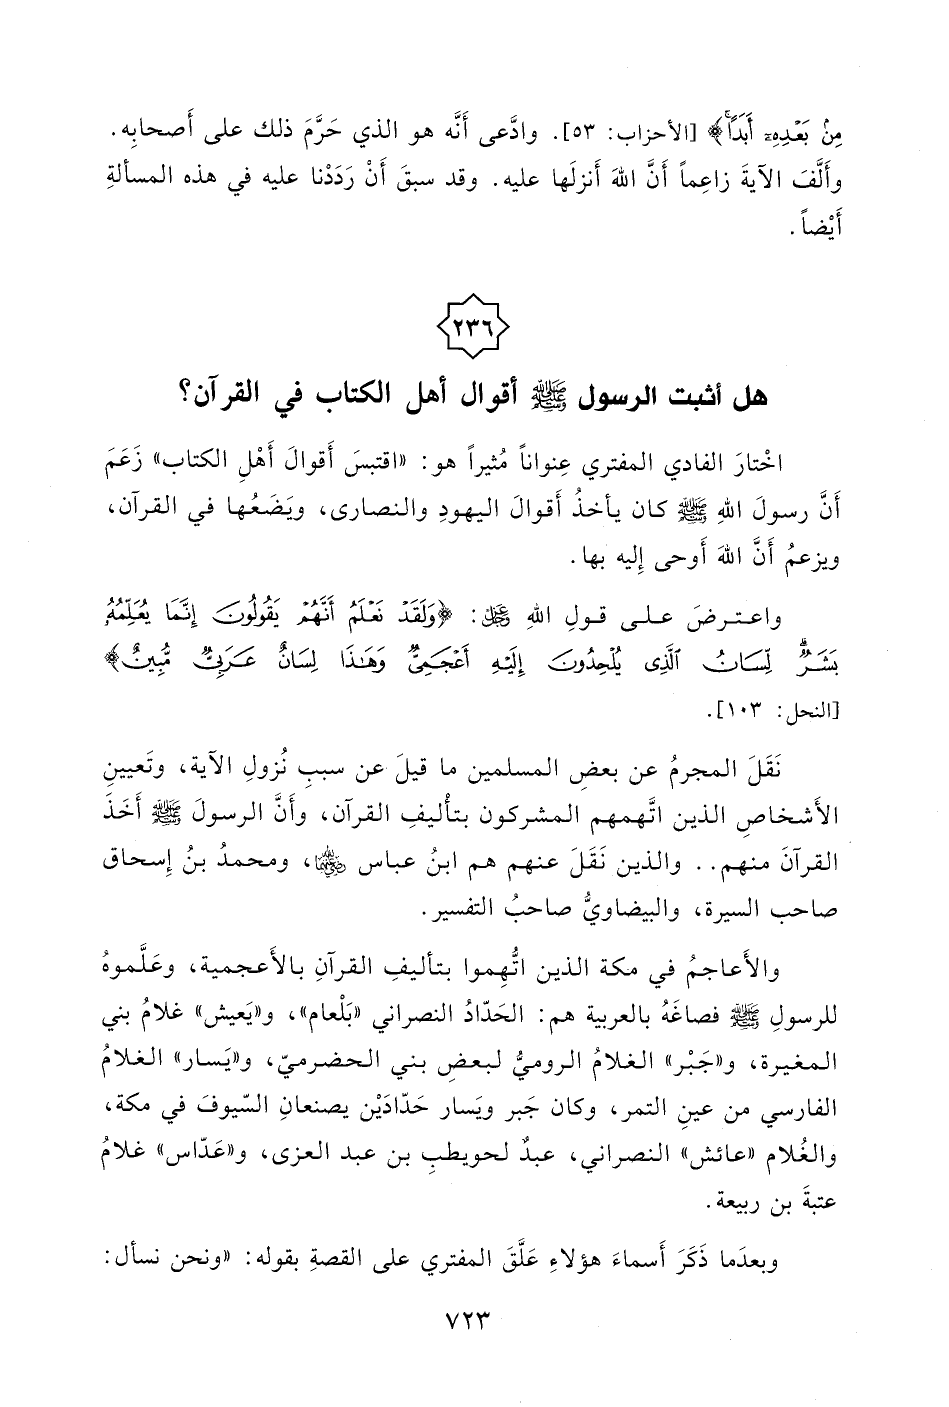 مِنْ بَعْدِهِۦٓ أَبَدًا﴾ [الأحزاب: ٥٣]. وادَّعى أَنَّه هو الذي حَرَّمَ ذلك على أَصحابِه.
وأَلَّفَ الآيةَ زاعِماً أَنَّ اللهَ أَنزلَها عليه. وقد سبقَ أَنْ رَدَدْنا عليه في هذه المسألةِ
أَيْضاً.
٢٣٦
هل أثبت الرسول ﷺ أقوال أهل الكتاب في القرآن؟
اخْتارَ الفادي المفتري عِنواناً مُثيراً هو: «اقتبسَ أَقوالَ أَهْلِ الكتاب» زَعَمَ
أَنَّ رسولَ اللهِ ﷺ كان يأخذُ أَقوالَ اليهودِ والنصارى، ويَضَعُها في القرآن،
ويزعمُ أَنَّ اللهَ أَوحى إِليه بها.
واعترضَ على قولِ اللهِ ﷻ: ﴿وَلَقَدْ نَعْلَمُ أَنَّهُمْ يَقُولُونَ إِنَّمَا يُعَلِّمُهُۥ
بَشَرٌۗ لِّسَانُ ٱلَّذِى يُلْحِدُونَ إِلَيْهِ أَعْجَمِىٌّ وَهَٰذَا لِسَانٌ عَرَبِىٌّ مُّبِينٌ﴾
[النحل: ١٠٣].
نَقَلَ المجرمُ عن بعضِ المسلمين ما قيلَ عن سببِ نُزولِ الآية، وتَعيينِ
الأشخاصِ الذين اتَّهمهم المشركون بتأْليفِ القرآن، وأَنَّ الرسولَ ﷺ أَخَذَ
القرآنَ منهم.. والذين نَقَلَ عنهم هم ابنُ عباس ﵄، ومحمدُ بنُ إسحاق
صاحب السيرة، والبيضاويُّ صاحبُ التفسير.
والأَعاجمُ في مكة الذين اتُّهِموا بتأليفِ القرآنِ بالأَعجمية، وعَلَّموهُ
للرسولِ ﷺ فصاغَهُ بالعربية هم: الحَدّادُ النصراني «بَلْعام»، و«يَعيش» غلامُ بني
المغيرة، و«جَبْر» الغلامُ الروميُّ لبعضِ بني الحضرميّ، و«يَسار» الغلامُ
الفارسي من عينِ التمر، وكان جَبر ويَسار حَدّادَيْن يصنعانِ السّيوفَ في مكة،
والغُلام «عائش» النصراني، عبدٌ لحويطبِ بن عبد العزى، و«عَدّاس» غلامُ
عتبةَ بن ربيعة.
وبعدَما ذَكَرَ أَسماءَ هؤلاءِ عَلَّقَ المفتري على القصةِ بقوله: «ونحن نسأل:
٧٢٣